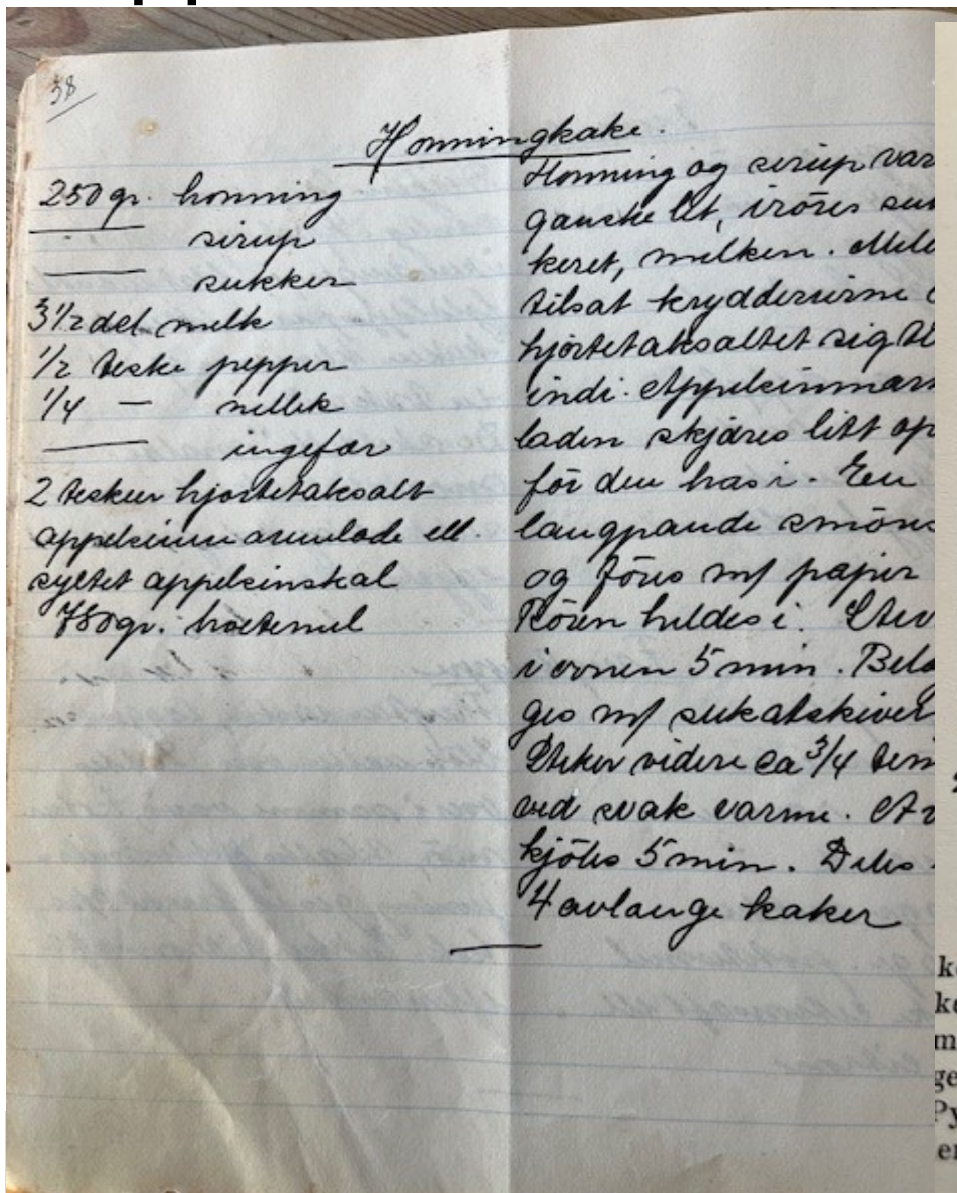 38
Honningkake.
250 gr. honning
— " — sirup
—— sukker
3 1/2 del melk
1/2 teske pepper
1/4 — nellik
—— ingefær
2 teskeer hjortetaksalt
appelsinmarmelade ell.
syltet appelsinskal
750 gr. hvetemel
Honning og sirup var
ganske lit, iröres suk
keret, melken. Mele
tilsat krydderierne
hjortetaksaltet sig
indi. Appelsinmarm
laden skjæres litt op
för den has i. En
langpande smöres
og föres m/ papir
Rören heldes i. Stek
i ovnen 5 min. Belæ
ges m/ sukatskiver
Steker videre ca 3/4 tim
ved svak varme. Av
kjöles 5 min. Deles
4 avlange kaker
k
ke
m
ge
Py
er